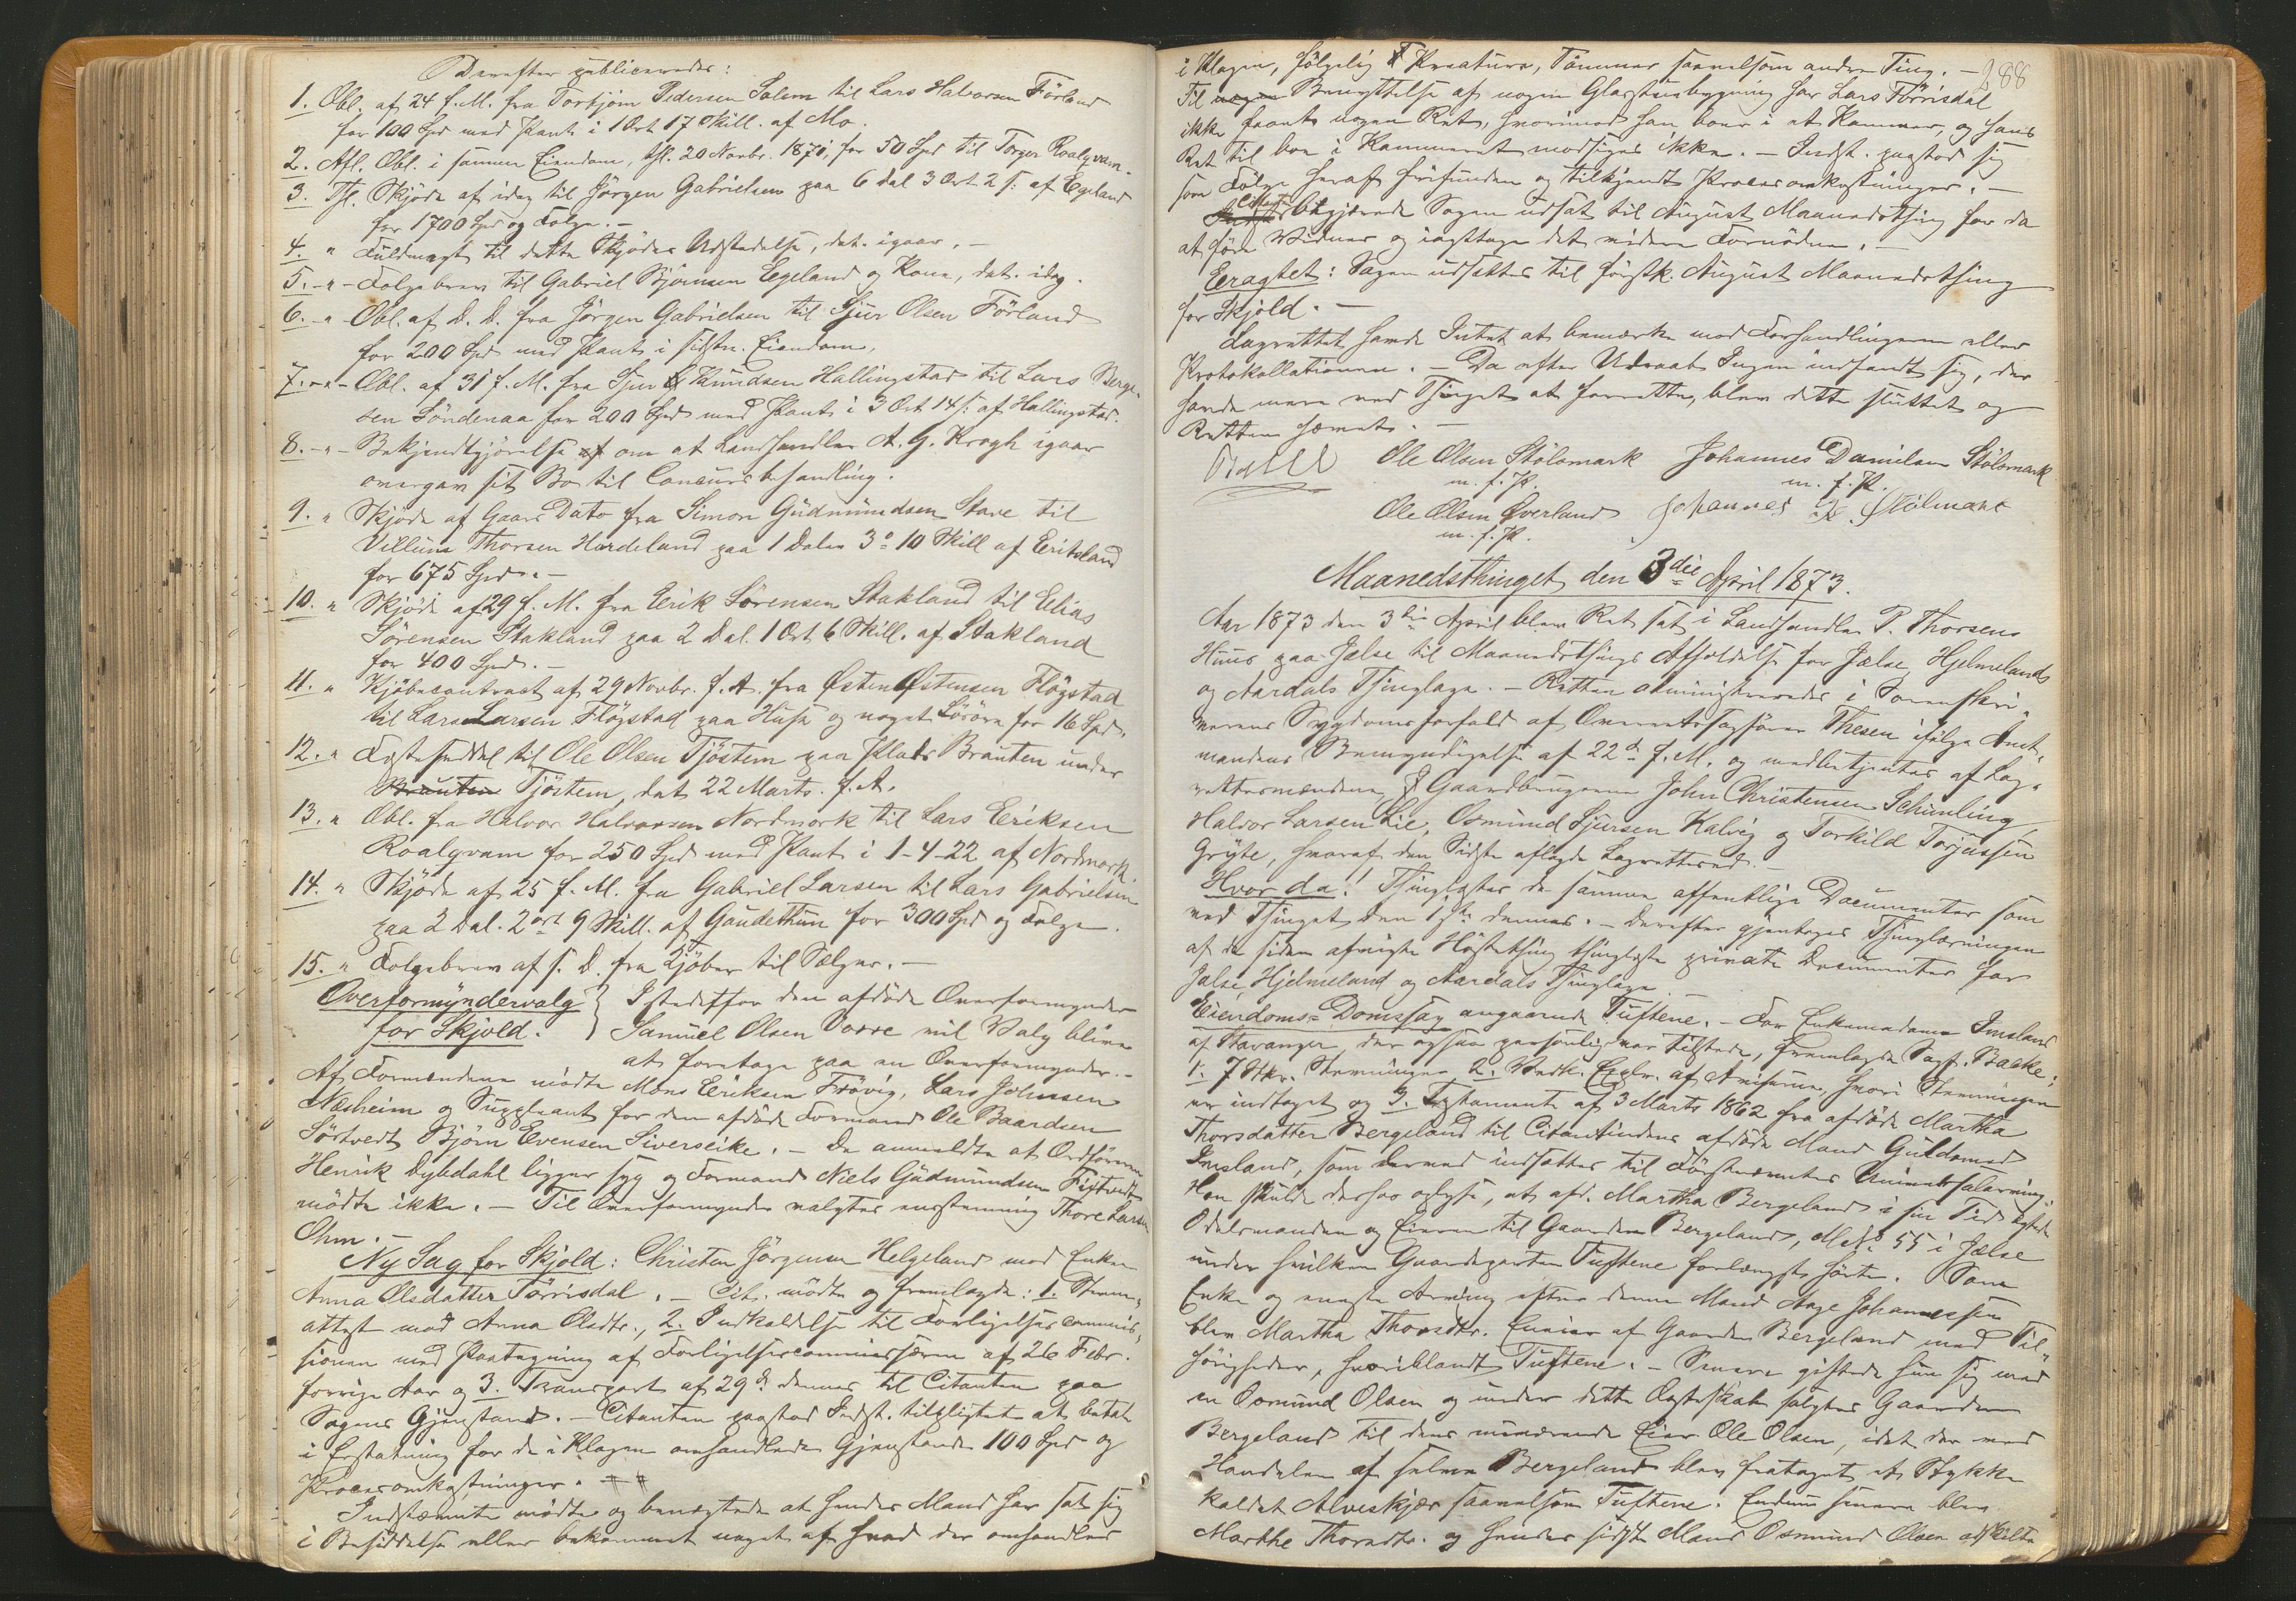 Derefter publiceredes:
1. Obl. af 24 f. M. fra Torbjörn Pedersen Solem til Lars Halvorsen Förland
for 100 Spd med Pant i 1 Ort 17 Skill. af Mo.
2. Afl. Obl. i samme Eiendom, thl. 20 Novbr. 1871, for 50 Spd til Torger Roalqvam.
3. Thl. Skjöde af idag til Jörgen Gabrielsen paa 6 dal 3 Ort 2 s. af Egeland
for 1700 Spd og Folge. -
4. " Fuldmagt til dette Skjödes Udstedelse, dat. igaar. -
5. - " - Folgebrev til Gabriel Björnsen Egeland og Kone, dat. idag.
6. - " Obl. af D. D. fra Jörgen Gabrielsen til Sjur Olsen Förland
for 200 Spd med Pant i sidstn. Eiendom.
7. - " - Obl. af 31 f. M. fra Sjur Knudsen Hallingstad til Lars Berge-
sen Söndenaa for 200 Spd med Pant i 3 Ort 14 s. af Hallingstad.
8. - " - Bekjendtgjörelse af om at Landhandler A. G. Krogh igaar
overgav sit Bo til Concursbehandling.
9. " Skjöde af Gaars Dato fra Simon Gudmundsen Stave til
Villum Thorsen Hardeland paa 1 Daler 3 o 10 Skill af Eeritsland
for 675 Spd. -
10. " Skjöde af 29 f. M. fra Erik Sörensen Stakland til Elias
Sörensen Stakland paa 2 Dal. 1 Ort 6 Skill. af Stakland
for 400 Spd. -
11. " Kjöbecontract af 29 Novbr. f. A. fra Östen Östensen Flögstad
til Lars Larsen Flögstad paa Huse og noget Lösöre for 16 Spd.
12. " Fæsteseddel til Ole Olsen Tjöstem paa Plads Brauten under
Brauten Tjöstem, dat 22 Marts f. A.
13. " Obl. fra Halvor Halvorsen Nordmork til Lars Eriksen
Roalqvam for 250 Spd med Pant i 1-4-22 af Nordmork.
14. " Skjöde af 25 f. M. fra Gabriel Larsen til Lars Gabrielsen
paa 2 Dal. 2 ort 9 Skill. af Gaudethun for 300 Spd og Folge.
15. " Folgebrev af s. D. fra Kjöber til Sælger. -
Overformyndervalg } Istedetfor den afdöde Overformynder
for Skjold. Samuel Olsen Vorre vil Valg blive
at foretage paa en Overformynder. -
Af Formændene mödte Mons Eriksen Frövig, Lars Johnsen
Næsheim og Suppleant for den afdöde Formand Ole Baardsen
Sörtvedt Björn Evensen Siverseike. - De anmeldte at Ordföreren
Henrik Dybdahl ligger syg og Formand Niels Gudmundsen Fistvedt
mödte ikke. - Til Overformynder valgtes enstemmig Thore Larsen
Ohm. -
Ny Sag for Skjold: Christen Jörgensen Helgeland mod Enken
Anna Olsdatter Törrisdal. - Cit. mödte og fremlagde: 1. Stevne-
attest mod Anna Olsdtr., 2. Indkaldelse til Forligelsescommis-
sionen med Paategning af Forligelsescommissærerne af 26 Febr.
forrige Aar og 3. Transport af 29 d. dennes til Citanten paa
Sagens Gjenstand. - Citanten paastod Indst. tilpligtet at betale
i Erstatning for de i Klagen omhandlede Gjenstande 100 Spd og
Procesomkostninger.
Indstævnte mödte og benægtede at hendes Mand har sat sig
i Besiddelse eller bekommet noget af hvad der omhandles
288
i Klagen, fölgelig Kreature, Tömmer saavelsom andre Ting. -
Til nogen Benyttelse af nogen Gladstuebygning har Lars Törrisdal
ikke havt nogen Ret, hvorimod han boer i et Kammer, og hans
Ret til boe i Kammeret modsiges ikke. - Indst. paastod sig
som Fölge heraf frifunden og tilkjendt Procesomkostninger. -
Citanten begjærede Sagen udsat til August Maanedsthing for da
at före Vidner og iagttage det videre Fornödne. -
Eragtet: Sagen udsættes til förstk. August Maanedsthing
for Skjold. -
Lagrettet havde Intet at bemærke mod Forhandlingerne eller
Protokollationen. - Da efter Udraab Ingen indfandt sig, der
havde mere ved Thinget at forrette, blev dette sluttet og
Retten hævet. -
Ole Olsen Stölsmark Johannes Danielsen Stölsmark
m. f. P. m. f. P.
Ole Olsen Överland Johannes Stölmark
m. f. P.
Maanedsthinget den 3die April 1873.
Aar 1873 den 3die April blev Ret sat i Landhandler P. Thorsens
Huus paa Jælse til Maanedsthings Afholdelse for Jælse, Hjelmelands
og Aardals Thinglage. - Retten administreredes i Sorenskri-
verens Sygdomsforfald af Overretssagförer Thesen ifölge Amt-
mandens Bemyndigelse af 22 d. f. M. og medbetjentes af Lag-
rettesmændene Gaardbrugerne John Christensen Schimling,
Halvor Larsen Lie, Osmund Sjursen Kalvig og Torkild Torjussen
Gryte, hvoraf den Sidste aflagde Lagretteed. -
Hvor da! Thinglæstes de samme offentlige Documenter som
ved Thinget den 1ste dennes. - Derefter gjentoges Thinglæsningen
af de siden afvigte Höstething thinglæste private Documenter for
Jælse, Hjelmeland og Aardals Thinglage.
Eiendoms-Domssag angaaende Tuftene. - For Enkemadame Imsland
af Stavanger, der ogsaa personlig var tilstede, fremlagde Sagf. Backe:
1. 7 Stkr. Stevninger 2. Vedk. Explr. af Aviserne hvori Stevningen
er indtaget og 3. Testamente af 3 Marts 1862 fra afdöde Martha
Thorsdatter Bergeland til Citantindens afdöde Mand Guldsmed
Imsland, som derved indsættes til Förstnævntes Universalarving.
Han skulde derhos oplyse, at afd. Martha Bergeland i sin Tid ægtede
Odelsmanden og Eieren til Gaarden Bergeland, M.No. 55 i Jælse
under hvilken Gaardeparten Tuftene forlængst hörte. Som
Enke og eneste Arving efter denne Mand Aage Johannessen
blev Martha Thorsdtr. Eneier af Gaarden Bergeland med Til-
hörigheder, hvoriblandt Tuftene. - Senere giftede hun sig med
en Osmund Olsen og under dette Ægteskab solgtes Gaarden
Bergeland til dens nuværende Eier Ole Olsen, idet der ved
Handelen af selve Bergeland blev frataget et Stykke
kaldet Alveskjær saavelsom Tuftene. Endnu senere blev
Marthe Thorsdtr. og hendes sidste Mand Osmund Olsen adskilte